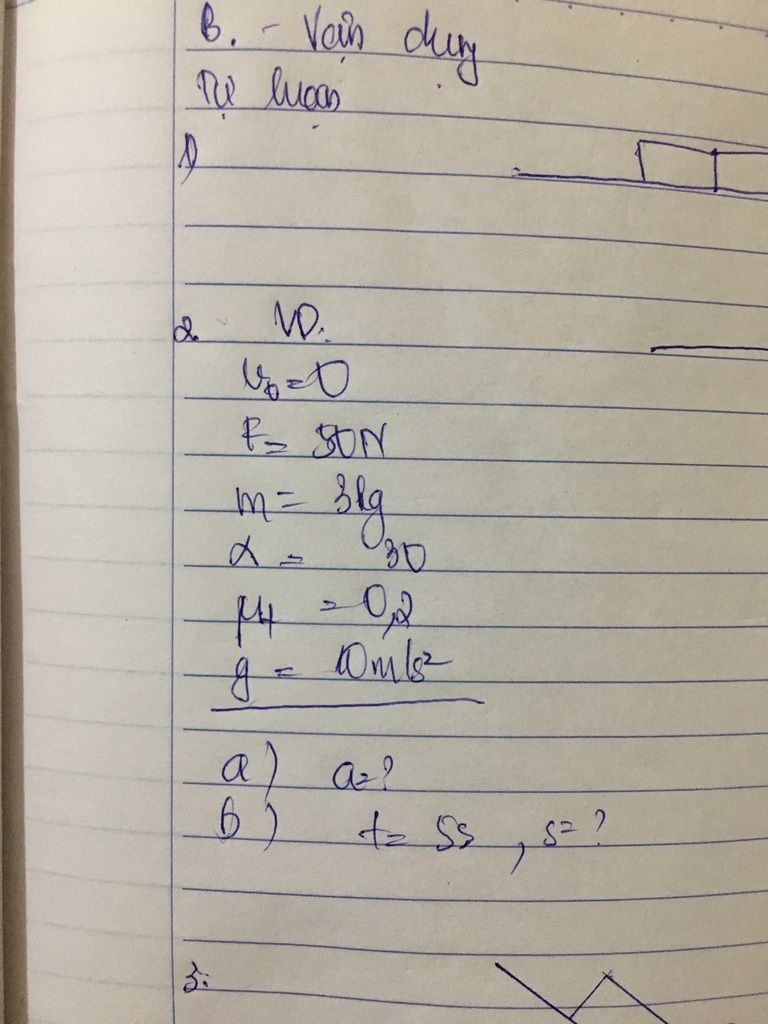 B. - Vận dụng
Tự luận
1)
2. VD:
v₀ = 0
F = 30N
m = 3kg
α = 30
μt = 0,2
g = 10m/s²
a) a = ?
b) t = 5s, s = ?
3.